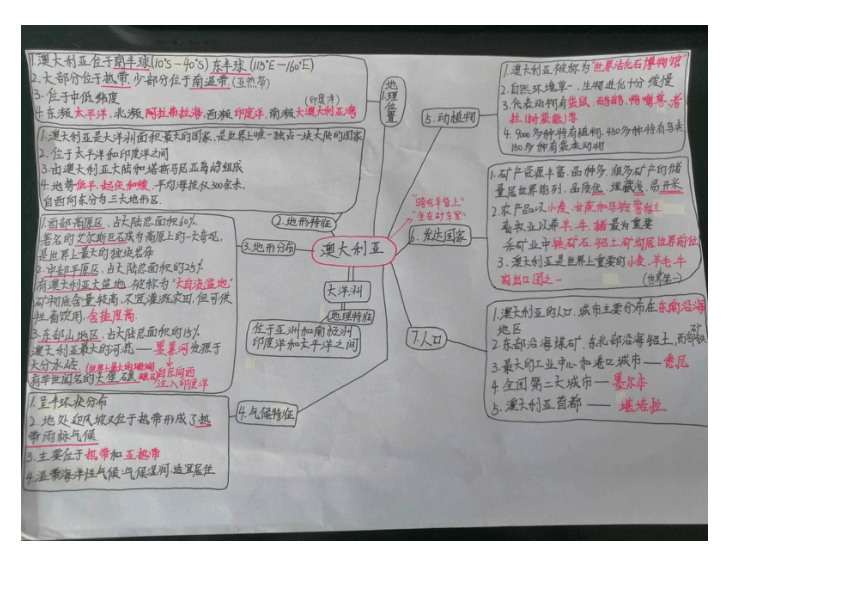 1.澳大利亚位于南半球(10°S—40°S)东半球(113°E—160°E)
2.大部分位于热带,少部分位于南温带(亚热带)
3.位于中低纬度
(印度洋)
4.东频太平洋,北濒阿拉弗拉海,西濒印度洋,南频大澳大利亚湾
1.地理位置
1.澳大利亚是大洋洲面积最大的国家,是世界上唯一独占一块大陆的国家
2.位于太平洋和印度洋之间
3.由澳大利亚大陆和塔斯马尼亚岛等组成
4.地势低平,起伏和缓,平均海拔仅300余米,
自西向东分为三大地形区.
2.地形特征
1.西部高原区,占大陆总面积60%.
著名的艾尔斯巨石成为高原上的一大奇观,
是世界上最大的独块岩石
2.中部平原区,占大陆总面积的25%
有澳大利亚大盆地,被称为"大自流盆地"
矿物质含量较高,不宜灌溉农田,但可供
牲畜饮用,含盐度高.
3.东部山地区,占大陆总面积的15%
澳大利亚最大的河流——墨累河发源于
大分水岭,
有举世闻名的大堡礁
自东向西
注入印度洋
3.地形分布
澳大利亚
"骑在羊背上"
"坐在矿车里"
大洋洲
地理特征
位于亚洲和南极洲
印度洋和太平洋之间
1.呈半环状分布
2.地处迎风坡又位于热带形成了热
带雨林气候
3.主要位于热带和亚热带
4.温带海洋性气候:气候湿润,适宜居住
4.气候特征
5.动植物
1.澳大利亚被称为"世界活化石博物馆"
2.自然环境单一,生物进化十分缓慢
3.代表动物有袋鼠、鸸鹋、鸭嘴兽、考
拉(树袋熊)等
4.9000多种特有植物,450多种特有鸟类
150多种有袋类动物
6.发达国家
1.矿产资源丰富,品种多,很多矿产的储
量居世界前列,品质优,埋藏浅,易开采
2.农产品以小麦、甘蔗和
畜牧业以养羊、牛、猪最为重要
采矿业中铁矿石、铝土矿均居世界前位
3.澳大利亚是世界上重要的小麦、羊毛、牛
肉出口国之一
(世界第一)
7.人口
1.澳大利亚的人口、城市主要分布在东南沿海
地区
2.东部沿海煤矿,东北部沿海铝土矿,西部铁
3.最大的工业中心和港口城市——悉尼
4.全国第二大城市——墨尔本
5.澳大利亚首都——堪培拉